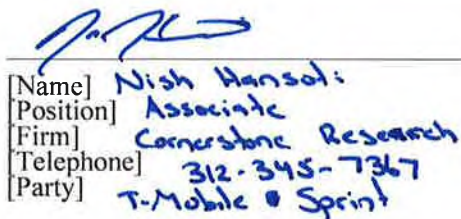 [Name] Nish Hansoti
[Position] Associate
[Firm] Cornerstone Research
[Telephone] 312-345-7367
[Party] T-Mobile Sprint